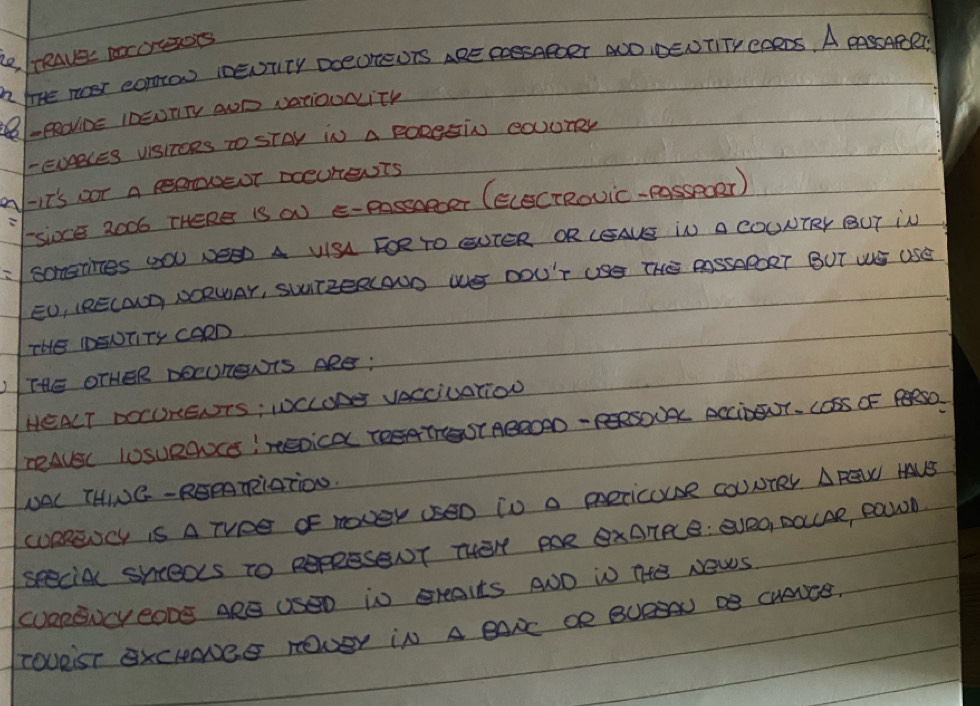 TRAVEL DOCUMENTS
THE MOST COMMON IDENTITY DOCUMENTS ARE PASSAPORT AND IDENTITY CARDS. A PASSAPORT:
- PROVIDE IDENTITY AND NATIONALITY
- ENABLES VISITORS TO STAY IN A FOREGEIN COUNTRY
- IT'S NOT A PERMANENT DOCUMENTS
- SINCE 2006 THERE IS AN E-PASSAPORT (ELECTRONIC-PASSPORT)
SOMETIMES YOU NEED A VISA FOR TO ENTER OR LEAVE IN A COUNTRY BUT IN
EU, IRELAND, NORWAY, SWITZERLAND WE DON'T USE THE PASSAPORT BUT WE USE
THE IDENTITY CARD
THE OTHER DOCUMENTS ARE:
HEALT DOCUMENTS: INCLUDE VACCINATION
TRAVEL INSURANCE: MEDICAL TREATMENT ABROAD - PERSONAL ACCIDENT - LOSS OF PERSO-
NAL THING - REPATRIATION.
CURRENCY IS A TYPE OF MONEY USED IN A PARTICULAR COUNTRY A FEW HAVE
SPECIAL SYMBOLS TO REPRESENT THEM FOR EXAMPLE: EURO, DOLLAR, POUND.
CURRENCY CODE ARE USED IN EMAILS AND IN THE NEWS.
TOURIST EXCHANGE MONEY IN A BANC OR BUREAU DE CHANGE.